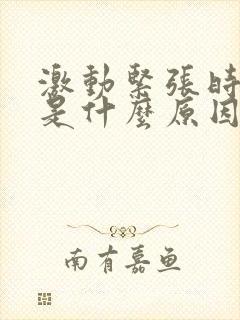 激動緊張時
是什麼原因
南有嘉鱼